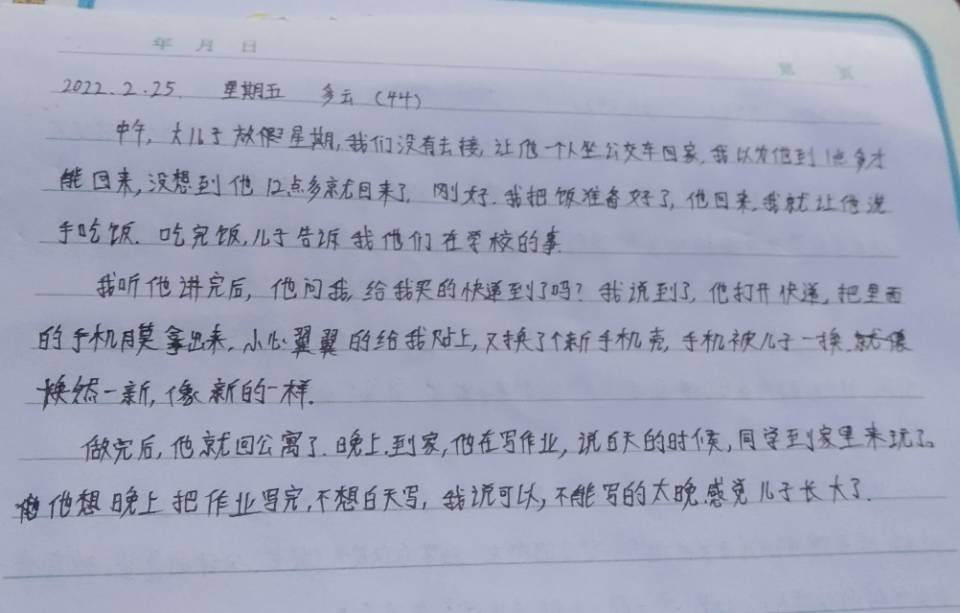 年 月 日
第 页
2022.2.25. 星期五 多云（44）
中午，大儿子放假星期，我们没有去接，让他一个人坐公交车回家，我以为他到1点多才
能回来，没想到他12点多就回来了，刚好，我把饭准备好了，他回来，我就让他洗
手吃饭．吃完饭，儿子告诉我他们在学校的事
我听他讲完后，他问我，给我买的快递到了吗？我说到了，他打开快递，把里面
的手机膜拿出来，小心翼翼的给我贴上，又换了个新手机壳，手机被儿子一换，就像
焕然一新，像新的一样．
做完后，他就回公寓了．晚上，到家，他在写作业，说白天的时候，同学到家里来玩了。
他想晚上把作业写完，不想白天写，我说可以，不能写的太晚．感觉儿子长大了．